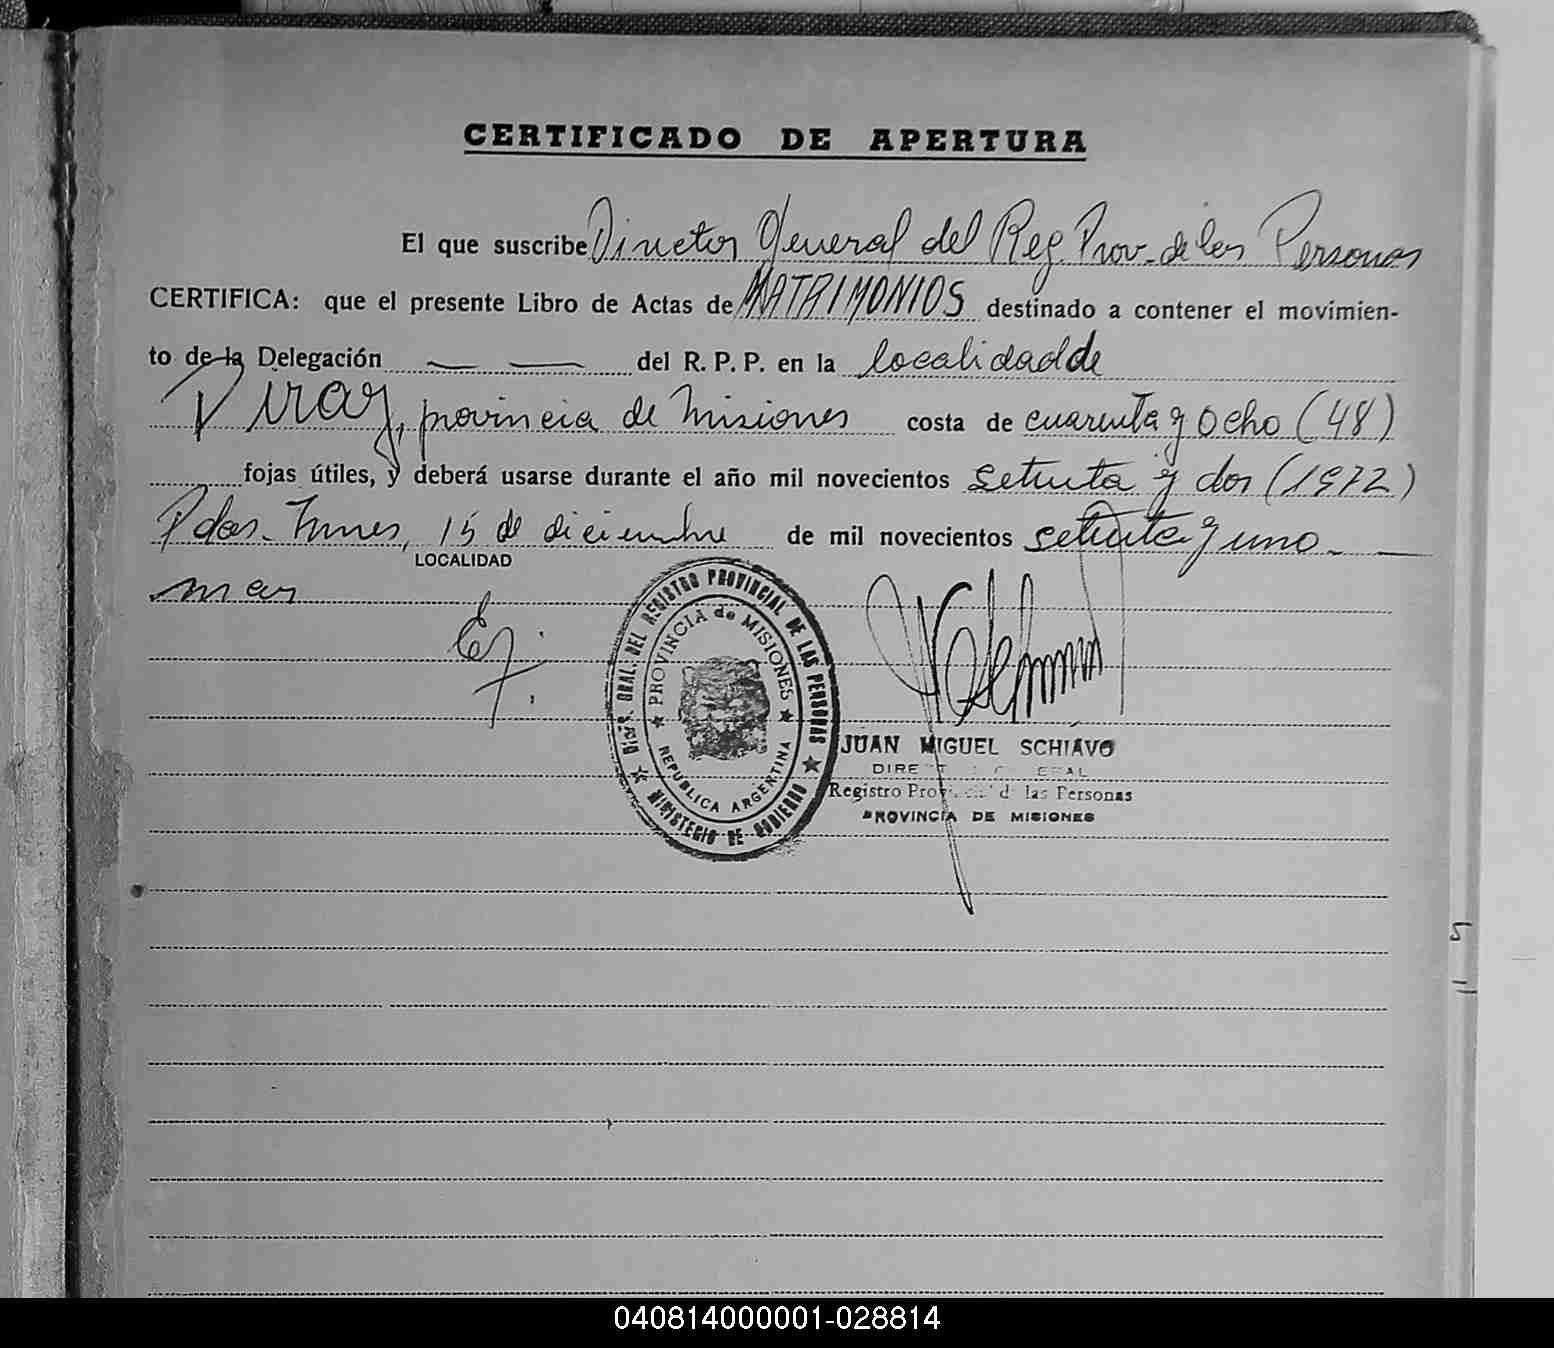 CERTIFICADO DE APERTURA
El que suscribe Director General del Reg. Prov. de las Personas
CERTIFICA: que el presente Libro de Actas de MATRIMONIOS destinado a contener el movimien-
to de la Delegación — — del R. P. P. en la localidad de
Piray, provincia de Misiones costa de cuarenta y ocho (48)
fojas útiles, y deberá usarse durante el año mil novecientos setenta y dos (1972)
Pdas. Mnes, 15 de diciembre de mil novecientos setenta y uno. —
LOCALIDAD
DIR. GRAL. DEL REGISTRO PROVINCIAL DE LAS PERSONAS
PROVINCIA de MISIONES
REPUBLICA ARGENTINA
MINISTERIO DE GOBIERNO
JUAN MIGUEL SCHIAVO
Registro Provincial de las Personas
PROVINCIA DE MISIONES
040814000001-028814